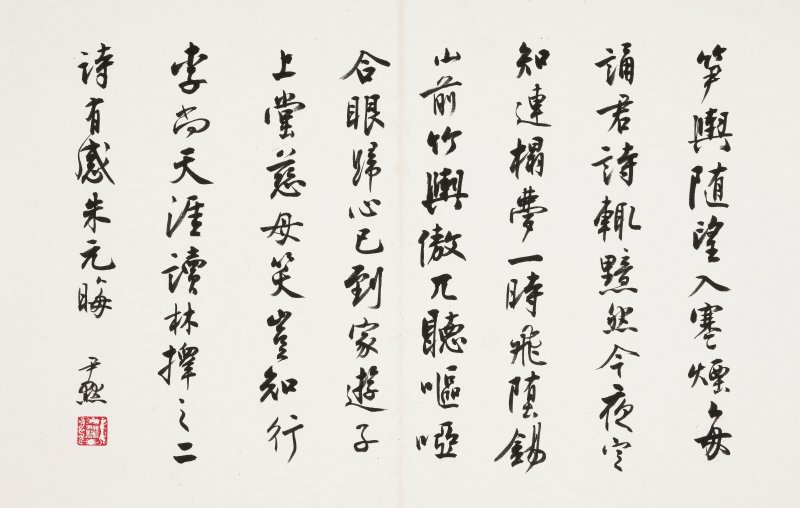 笋輿随望入寒煙每
誦君詩輒黯然今夜定
知連榻夢一時飛堕錫
山前竹輿傲兀聽嘔啞
合眼歸心已到家遊子
上堂慈母笑豈知行
李尚天涯讀林擇之二
詩有感朱元晦 尹默